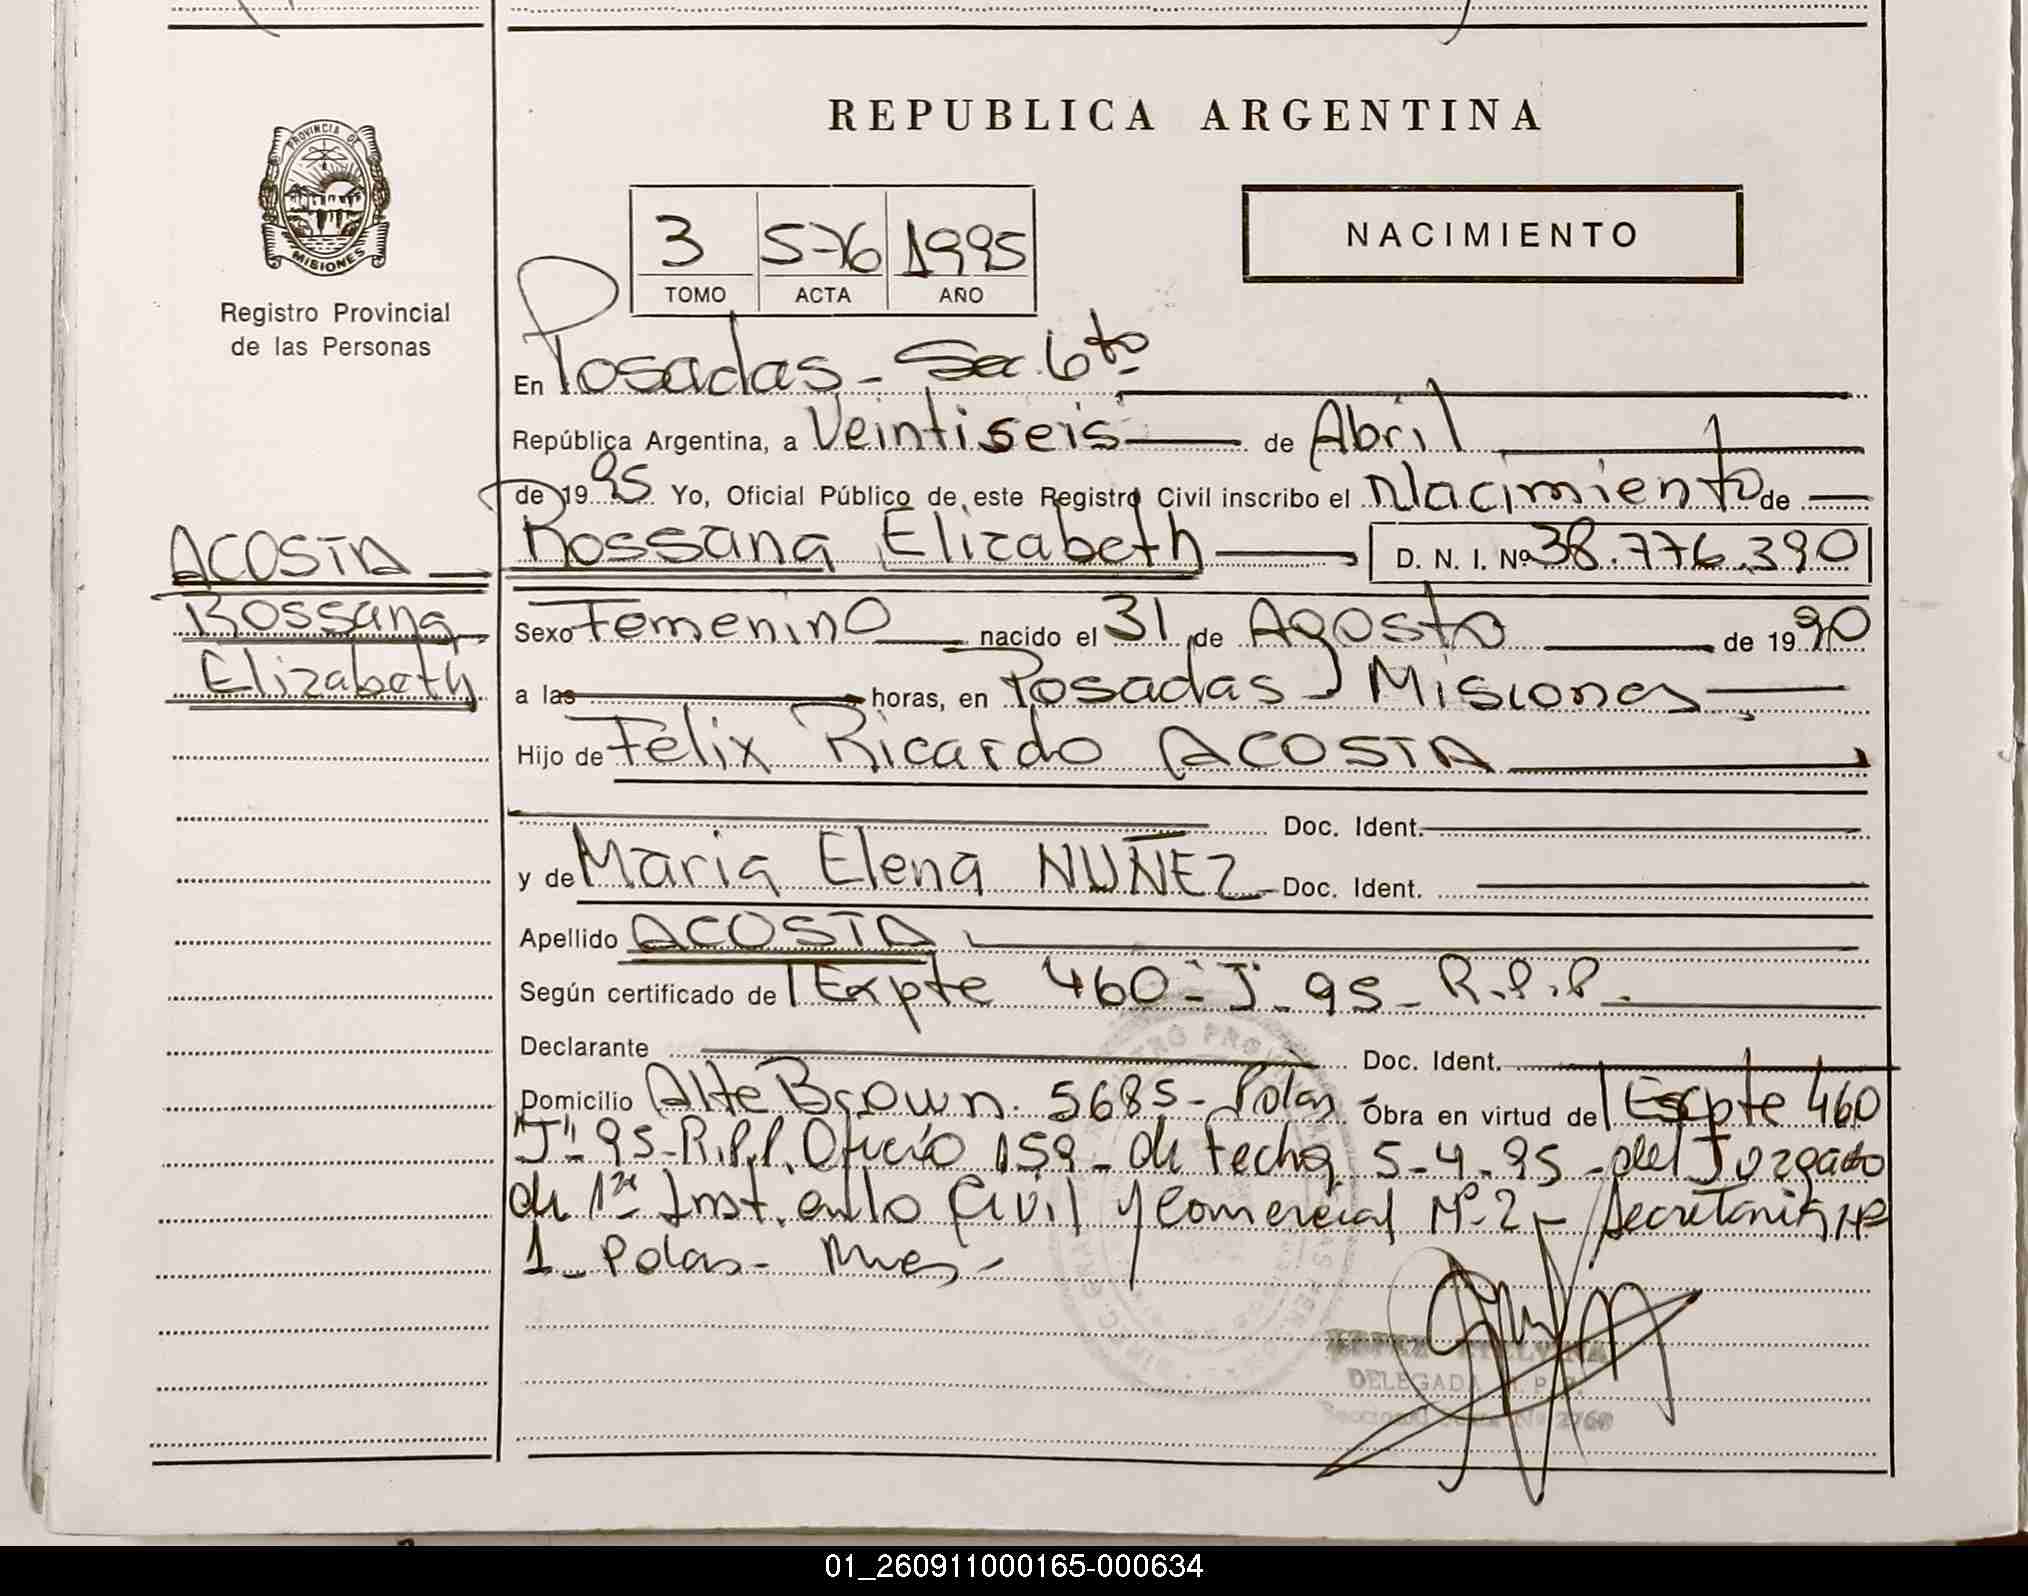 REPUBLICA ARGENTINA
PROVINCIA DE
MISIONES
Registro Provincial
de las Personas
3 576 1995
TOMO ACTA AÑO
NACIMIENTO
En Posadas - Sec. 6to
República Argentina, a Veintiseis de Abril
de 1995 Yo, Oficial Público de este Registro Civil inscribo el Nacimiento de
ACOSTA
Rossana
Elizabeth
Rossana Elizabeth D. N. I. Nº 38.776.390
Sexo Femenino nacido el 31 de Agosto de 1990
a las horas, en Posadas Misiones
Hijo de Felix Ricardo ACOSTA
Doc. Ident.
y de Maria Elena NUÑEZ Doc. Ident.
Apellido ACOSTA
Según certificado de Expte 460 - J - 95 - R.P.P.
Declarante Doc. Ident.
Domicilio Alte Brown 5685 - Pdas Obra en virtud de Expte 460
"J" 95 - R.P.P. Oficio 159 - de fecha 5-4-95 - del Juzgado
de 1ra Inst. en lo Civil y Comercial Nº 2 - Secretaria Nº
1 - Pdas - Mnes -
DELEGADA R. P. P.
01_260911000165-000634